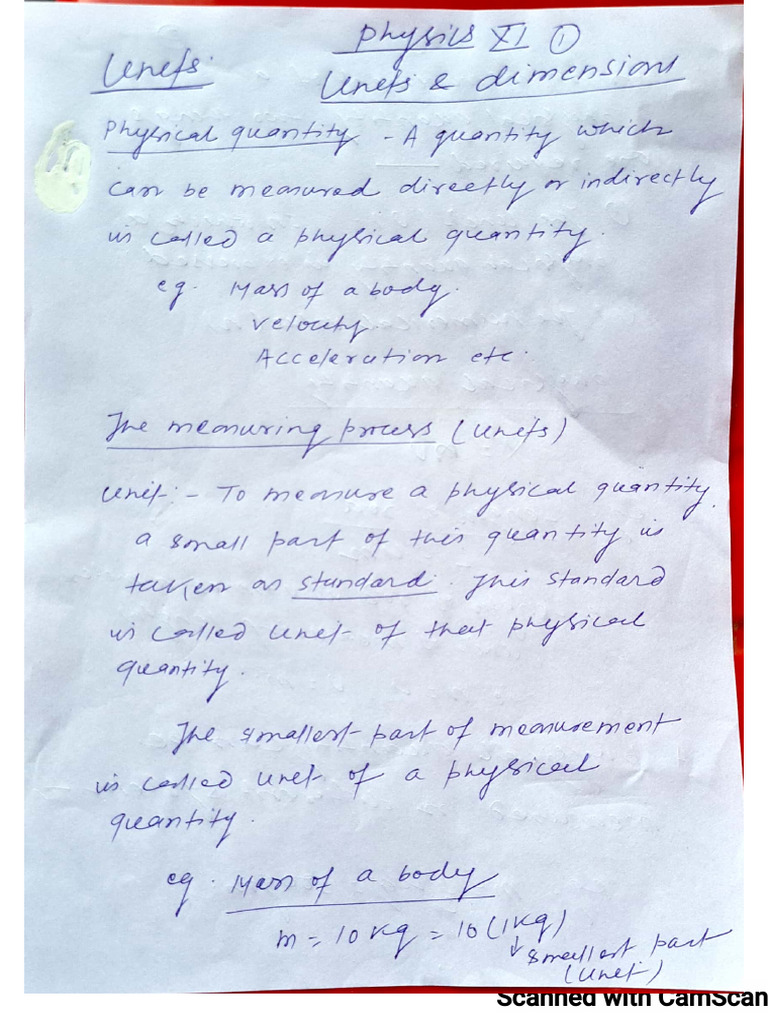 Physics XI ①
Units.
Units & dimensions
Physical quantity - A quantity which
can be measured directly or indirectly
is called a physical quantity.
eg. Mass of a body.
velocity
Acceleration etc.
The measuring process (units)
Unit:- To measure a physical quantity.
a small part of this quantity is
taken as standard. This standard
is called unit of that physical
quantity.
The smallest part of measurement
is called unit of a physical
quantity.
eg. Mass of a body
m = 10 Kg = 10 (1Kg)
↓ smallest part
(unit)
Scanned with CamScan